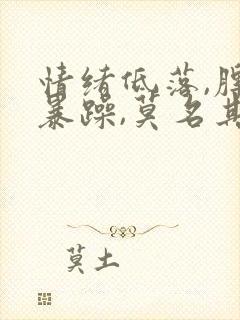 情绪低落,脾
暴躁,莫名其
莫土